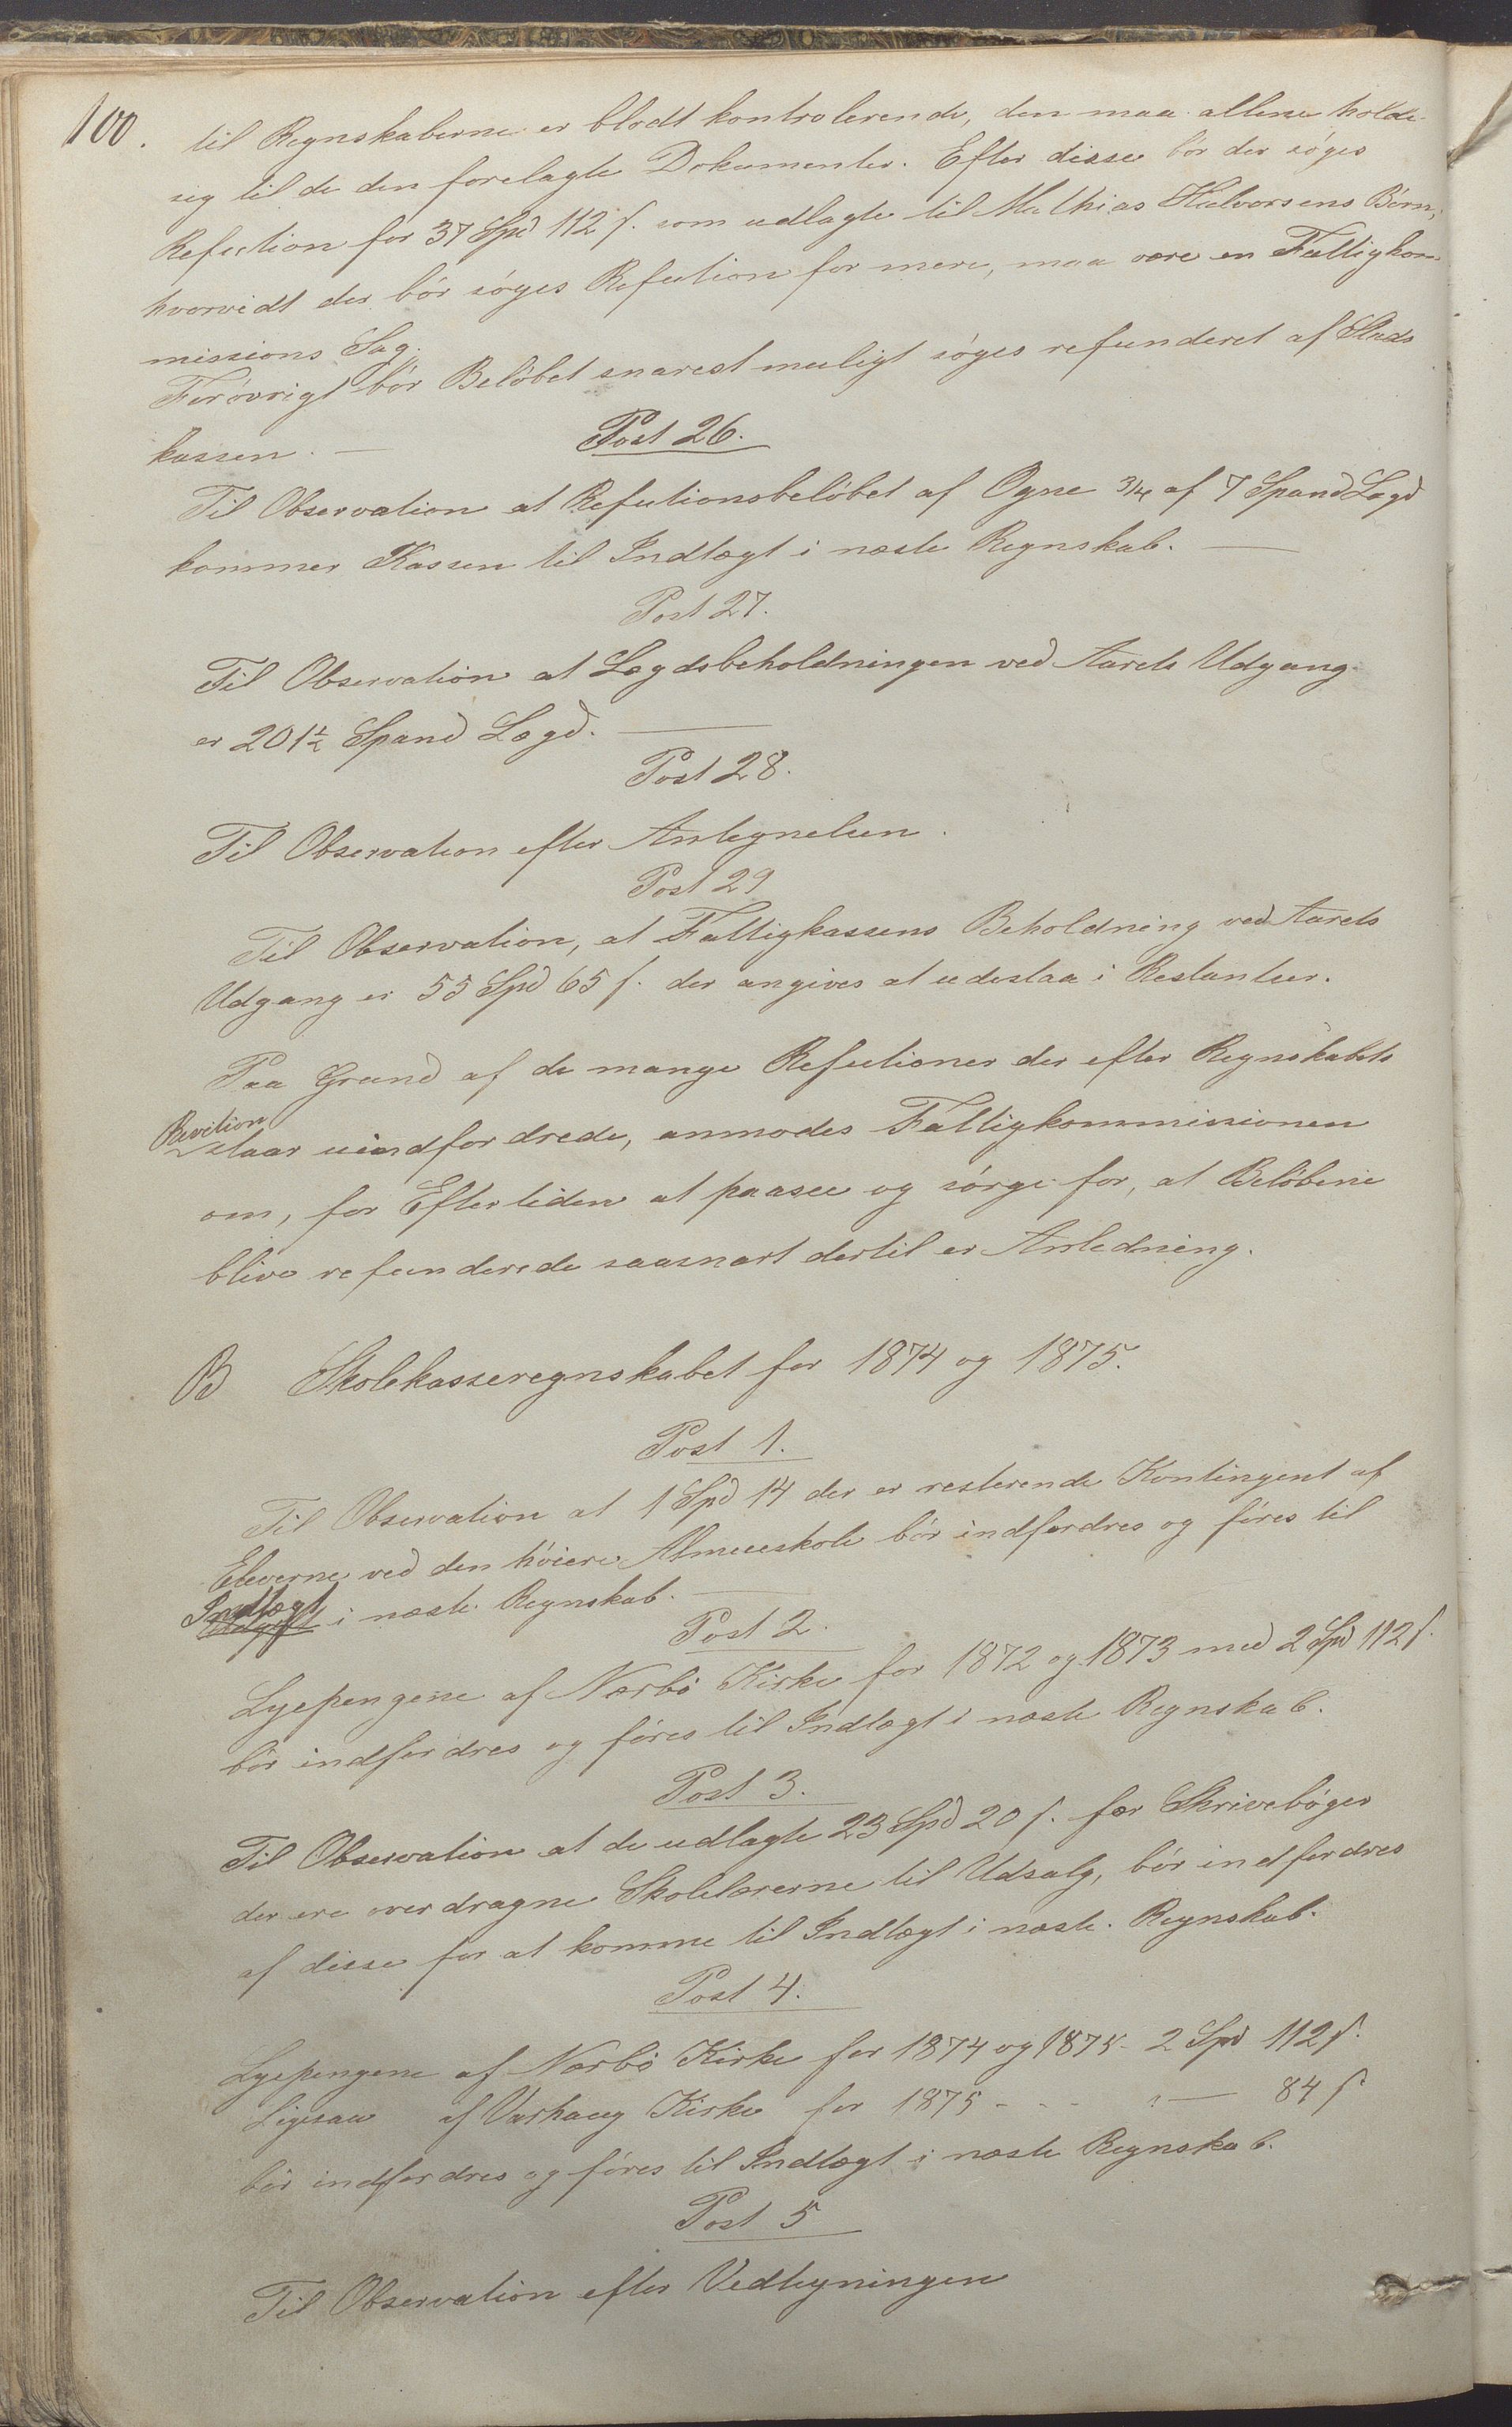 100.
til Regnskaberne er blodt kontrolerende, den maa allene holde
sig til de den forelagte Dokumenter. Efter disse bör der söges
Refution for 37 Spd 112 s. som udlagte til Mathias Halvorsens Börn;
hvorvidt der bör söges Refution for mere, maa være en Fattigkom-
missions Sag.
Forövrigt bör Belöbet snarest muligt söges refunderet af Stads
kassen. —
Post 26.
Til Observation at Refutionsbelöbet af Ogne 3/4 af 7 Spand Lægd
kommer Kassen til Indtægt i næste Regnskab. —
Post 27.
Til Observation at Lægdsbeholdningen ved Aarets Udgang
er 201½ Spand Lægd. —
Post 28.
Til Observation efter Antegnelsen.
Post 29
Til Observation, at Fattigkassens Beholdning ved Aarets
Udgang er 55 Spd 65 s. der angives at udestaa i Restantser.
Paa Grund af de mange Refutioner der efter Regnskabets
Revition
staar uindfordrede, anmodes Fattigkommissionen
om, for Eftertiden at paasee og sörge for, at Belöbene
blive refunderede saasnart dertil er Anledning.
B Skolekasseregnskabet for 1874 og 1875.
Post 1.
Til Observation at 1 Spd 14 der er resterende Kontingent af
Eleverne ved den höiere Almueskole bör indfordres og föres til
Indtægt
i næste Regnskab. —
Post 2.
Lyepengene af Nærbö Kirke for 1872 og 1873 med 2 Spd 112 s.
bör indfordres og föres til Indtægt i næste Regnskab.
Post 3.
Til Observation at de udlagte 23 Spd 20 s. for Skriveböger
der ere overdragne Skolelærerne til Udsalg, bör indfordres
af disse for at komme til Indtægt i næste Regnskab.
Post 4.
Lyepengene af Nærbö Kirke for 1874 og 1875 - 2 Spd 112 s.
Ligesaa af Varhaug Kirke for 1875 - - - " — 84 s
bör indfordres og föres til Indtægt i næste Regnskab.
Post 5
Til Observation efter Vedtegningen